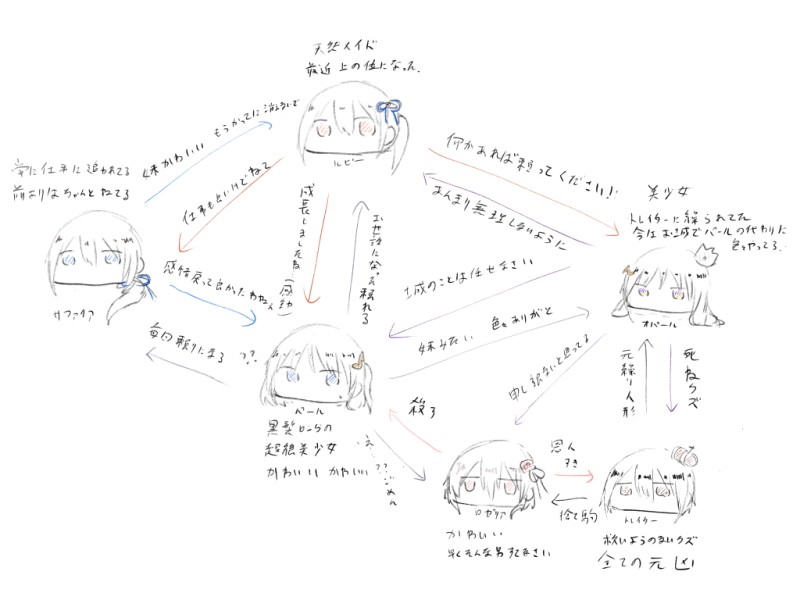 天然メイド
最近上の位になった.
ルビー
妹かわいい もうかってに消えないで
常に仕事に追われてる
前よりはちゃんとねてる
仕事もいいけどねて
何かあれば頼ってください!!
あんまり無理しないように
美少女
トレイターに操られてた
今はお城でパールの代わりに
色々やってる.
サファイア
感情戻って良かったわねぇ
成長しましたね(感動)
お世話になった 頼れる
城のことは任せなさい
妹みたい 色々ありがと
オパール
毎日頼りにする ??
申し訳ないと思ってる
元操り人形
死ねクズ
パール
黒髪ロングの
超絶美少女
かわいい かわいい
殺る
え…??ごめん
恩人
すき
捨て駒
ロゼリア
かわいい
早くそんな男すてなさい
トレイター
救いようのないクズ
全ての元凶